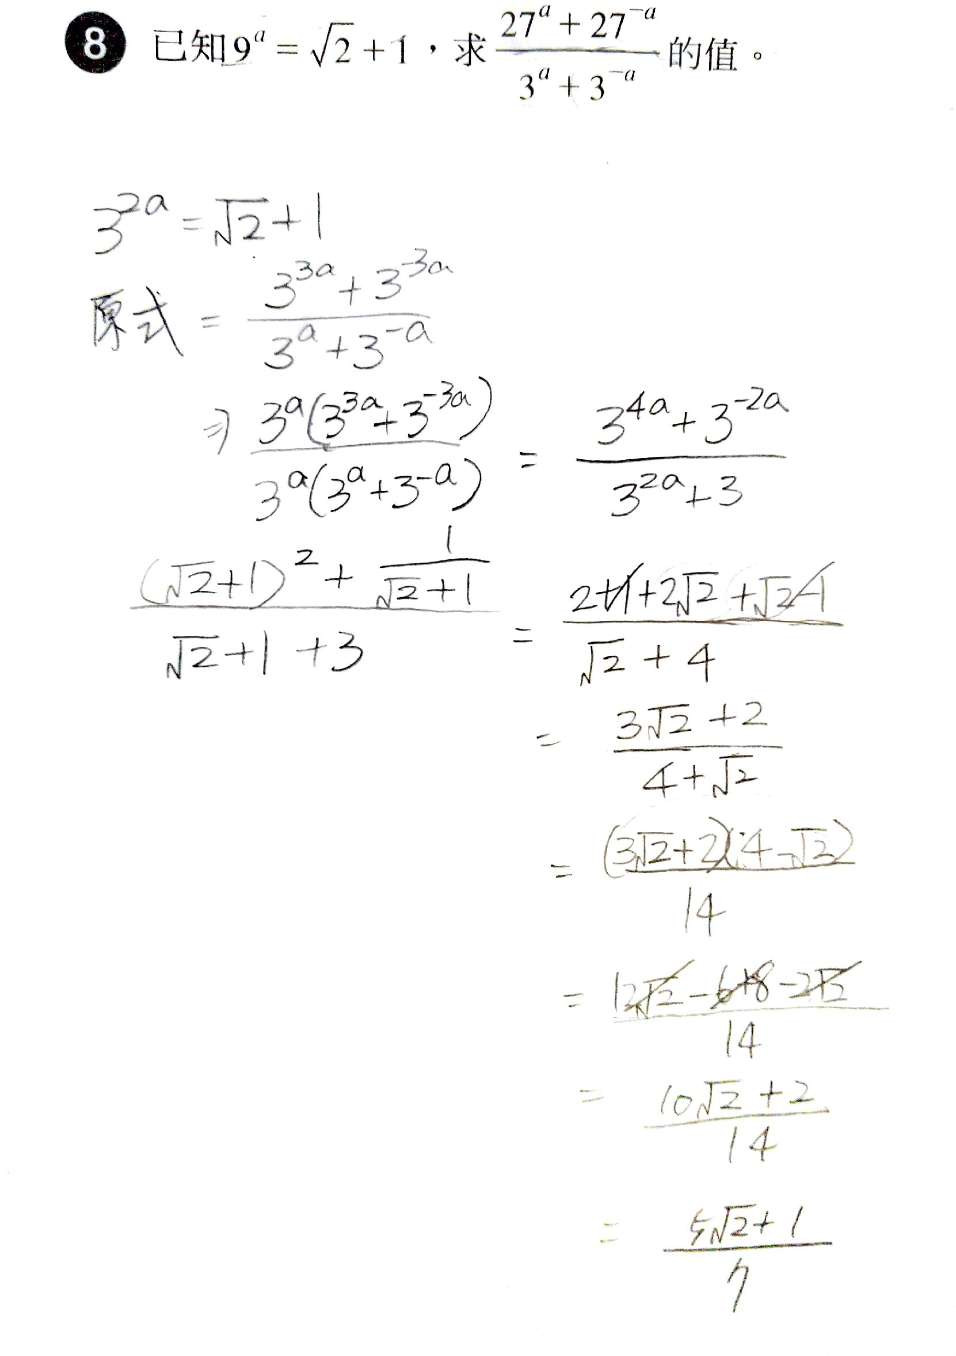 8 已知 9^a = √2 + 1，求 (27^a + 27^-a)/(3^a + 3^-a) 的值。
3^2a = √2 + 1
原式 = (3^3a + 3^-3a)/(3^a + 3^-a)
⇒ 3^a(3^3a + 3^-3a)/3^a(3^a + 3^-a) = (3^4a + 3^-2a)/(3^2a + 3)
((√2+1)^2 + 1/(√2+1))/(√2+1+3) = (2+1+2√2+√2-1)/(√2+4)
= (3√2+2)/(4+√2)
= (3√2+2)(4-√2)/14
= (12√2-6+8-2√2)/14
= (10√2+2)/14
= (5√2+1)/7